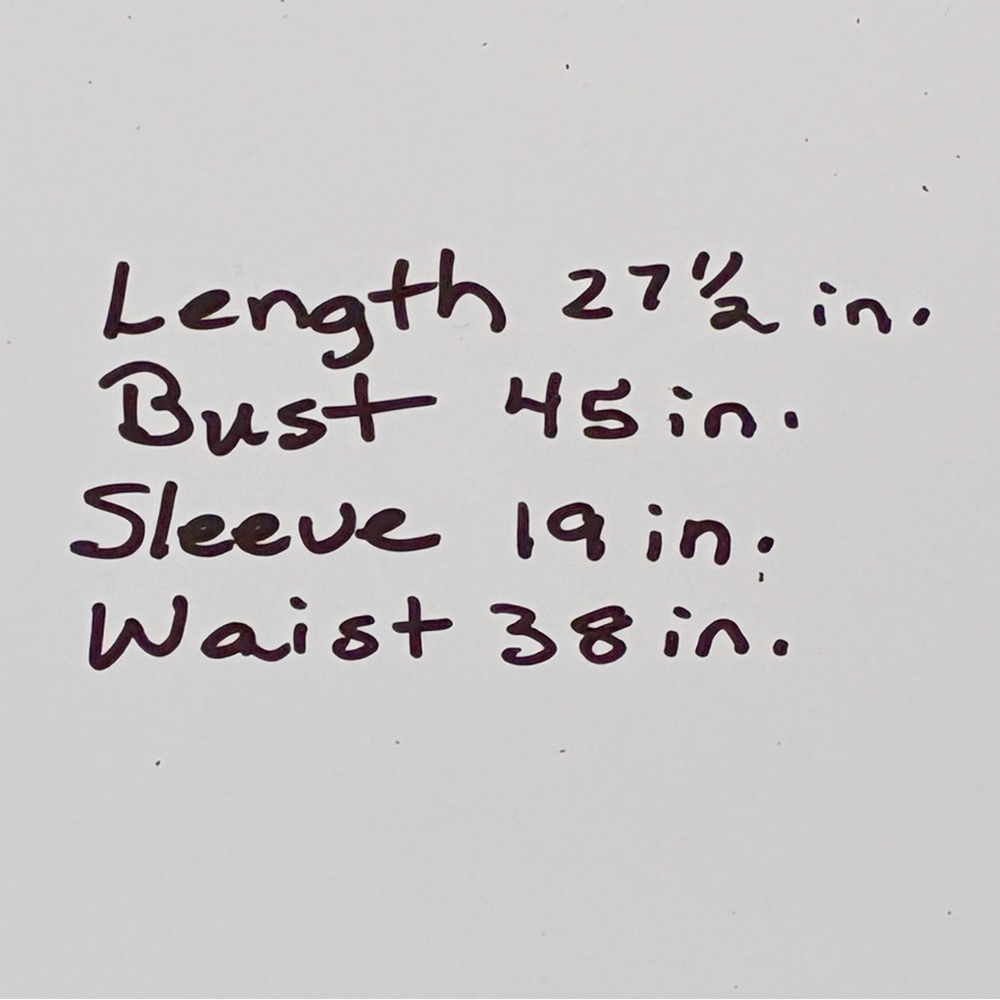 Length 27½ in.
Bust 45 in.
Sleeve 19 in.
Waist 38 in.